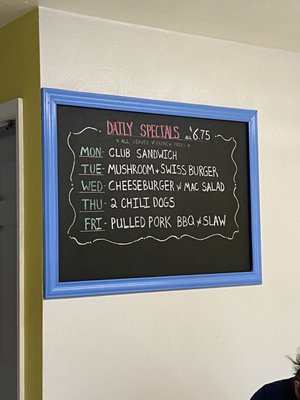 DAILY SPECIALS ALL $6.75
* ALL SERVED W/ FRENCH FRIES *
MON- CLUB SANDWICH
TUE- MUSHROOM & SWISS BURGER
WED- CHEESEBURGER W/ MAC SALAD
THU- 2 CHILI DOGS
FRI- PULLED PORK BBQ W/ SLAW